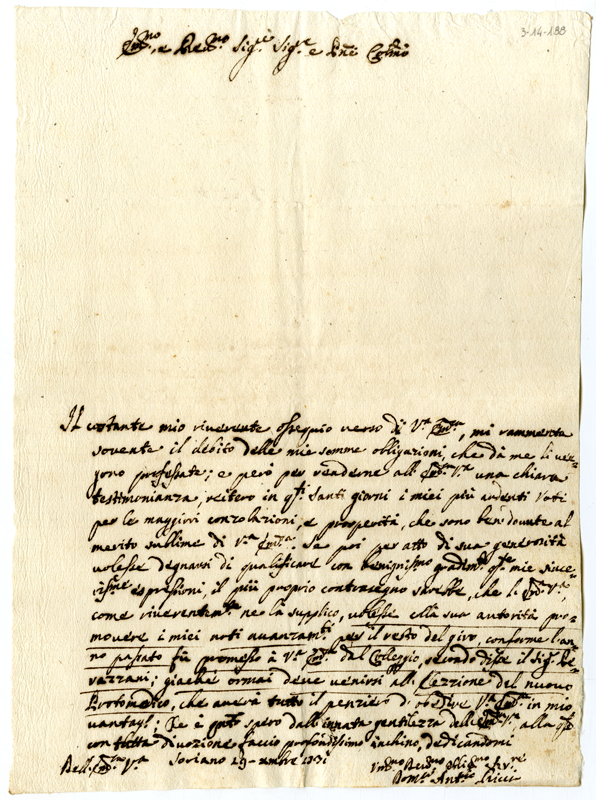 3-14-188
Ill.mo, e Re.mo Sig.re Sig.re e Pne Col.mo
Il costante mio riverente ossequio verso di V.a Ill.ma, mi rammenta
sovente il debito delle mie somme obligazioni, che dà me li ven-
gono professate; e però per renderne all' Ill.ma V.a una chiara
testimonianza, reitero in q.ti Santi giorni i miei più ardenti Voti
per le maggiori consolazioni, e prosperità, che sono ben dovute al
merito sublime di V.a Ill.ma. Se poi per atto di sua generosità
volesse degnarsi di qualificare con benignissimo gradim.to q.te mie since-
rissime espressioni, il più proprio contrasegno sarebbe, che li Ill.ma V.a,
come riverentem.te ne la supplico, volesse colla sua autorità pro-
movere i miei noti avanzam.ti per il resto del giro, conforme l'an-
no passato fù promesso à V.a Ill.ma dal Colleggio, secondo disse il Sig.r
vazzani; giache ormai deve venirsi all' Elezzione del nuovo
Protomedico, che averà tutto il penziero d' obedire V.a Ill.ma in mio
vantag.o: Se è q.to spero dall' innata gentilezza dell' Ill.ma V.a alla q.le
con tutta divozione faccio profondissimo inchino, dedicandomi
Dell' Ill.ma V.a Soriano 19 Xmbre 1731
Um.mo Dev.mo Oblig.mo Serv.re
Dom.co Ant.o Ricci